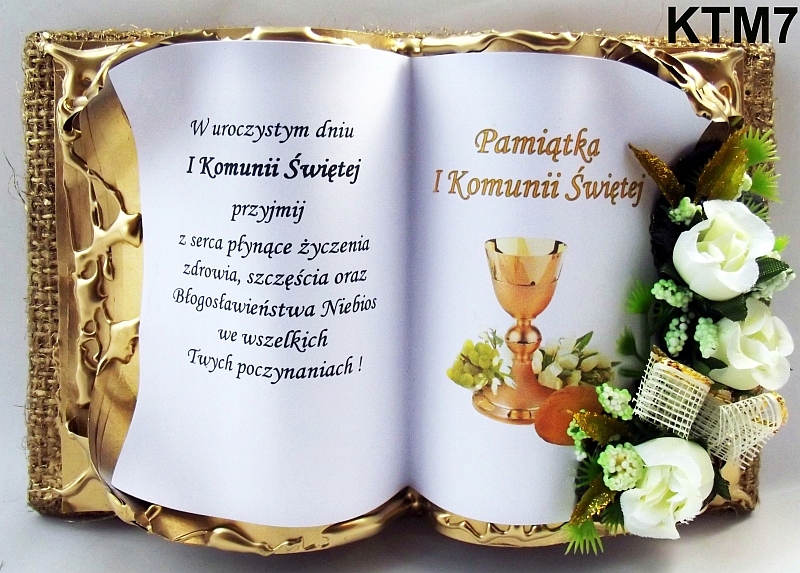 KTM7
W uroczystym dniu
I Komunii Świętej
przyjmij
z serca płynące życzenia
zdrowia, szczęścia oraz
Błogosławieństwa Niebios
we wszelkich
Twych poczynaniach !
Pamiątka
I Komunii Świętej